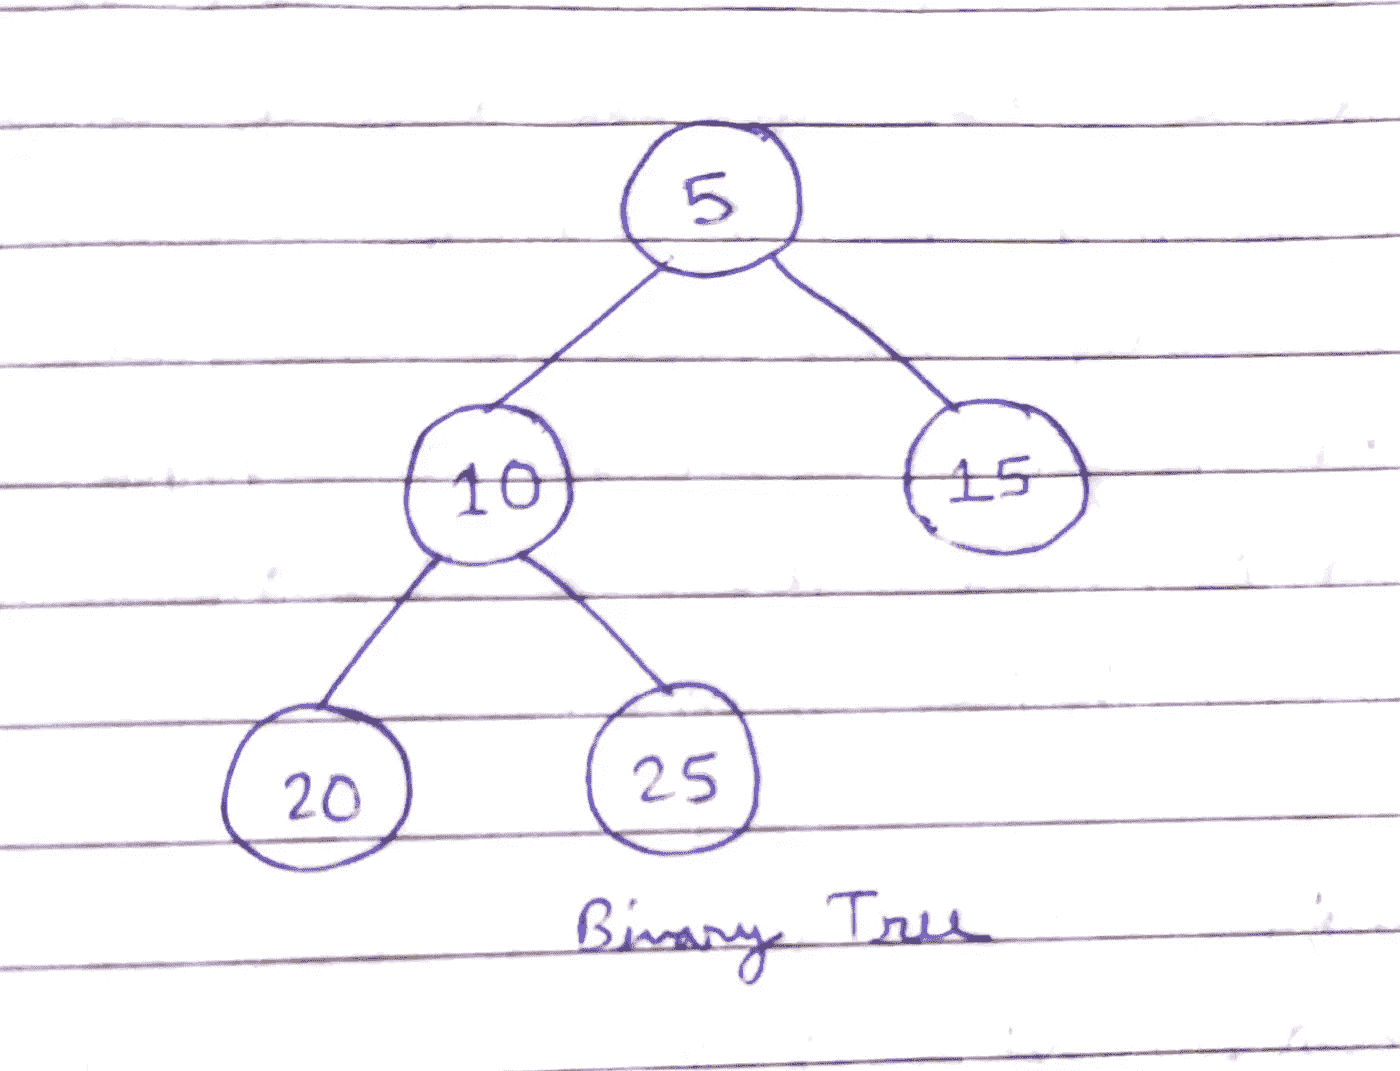 5
10 15
20 25
Binary Tree